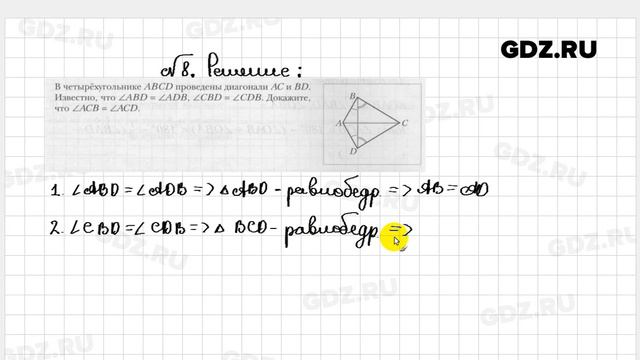 GDZ.RU
№8. Решение:
В четырёхугольнике ABCD проведены диагонали AC и BD.
Известно, что ∠ABD = ∠ADB, ∠CBD = ∠CDB. Докажите,
что ∠ACB = ∠ACD.
B
A
C
D
1. ∠ABD = ∠ADB => △ABD - равнобедр => AB = AD
2. ∠CBD = ∠CDB => △ BCD - равнобедр =>